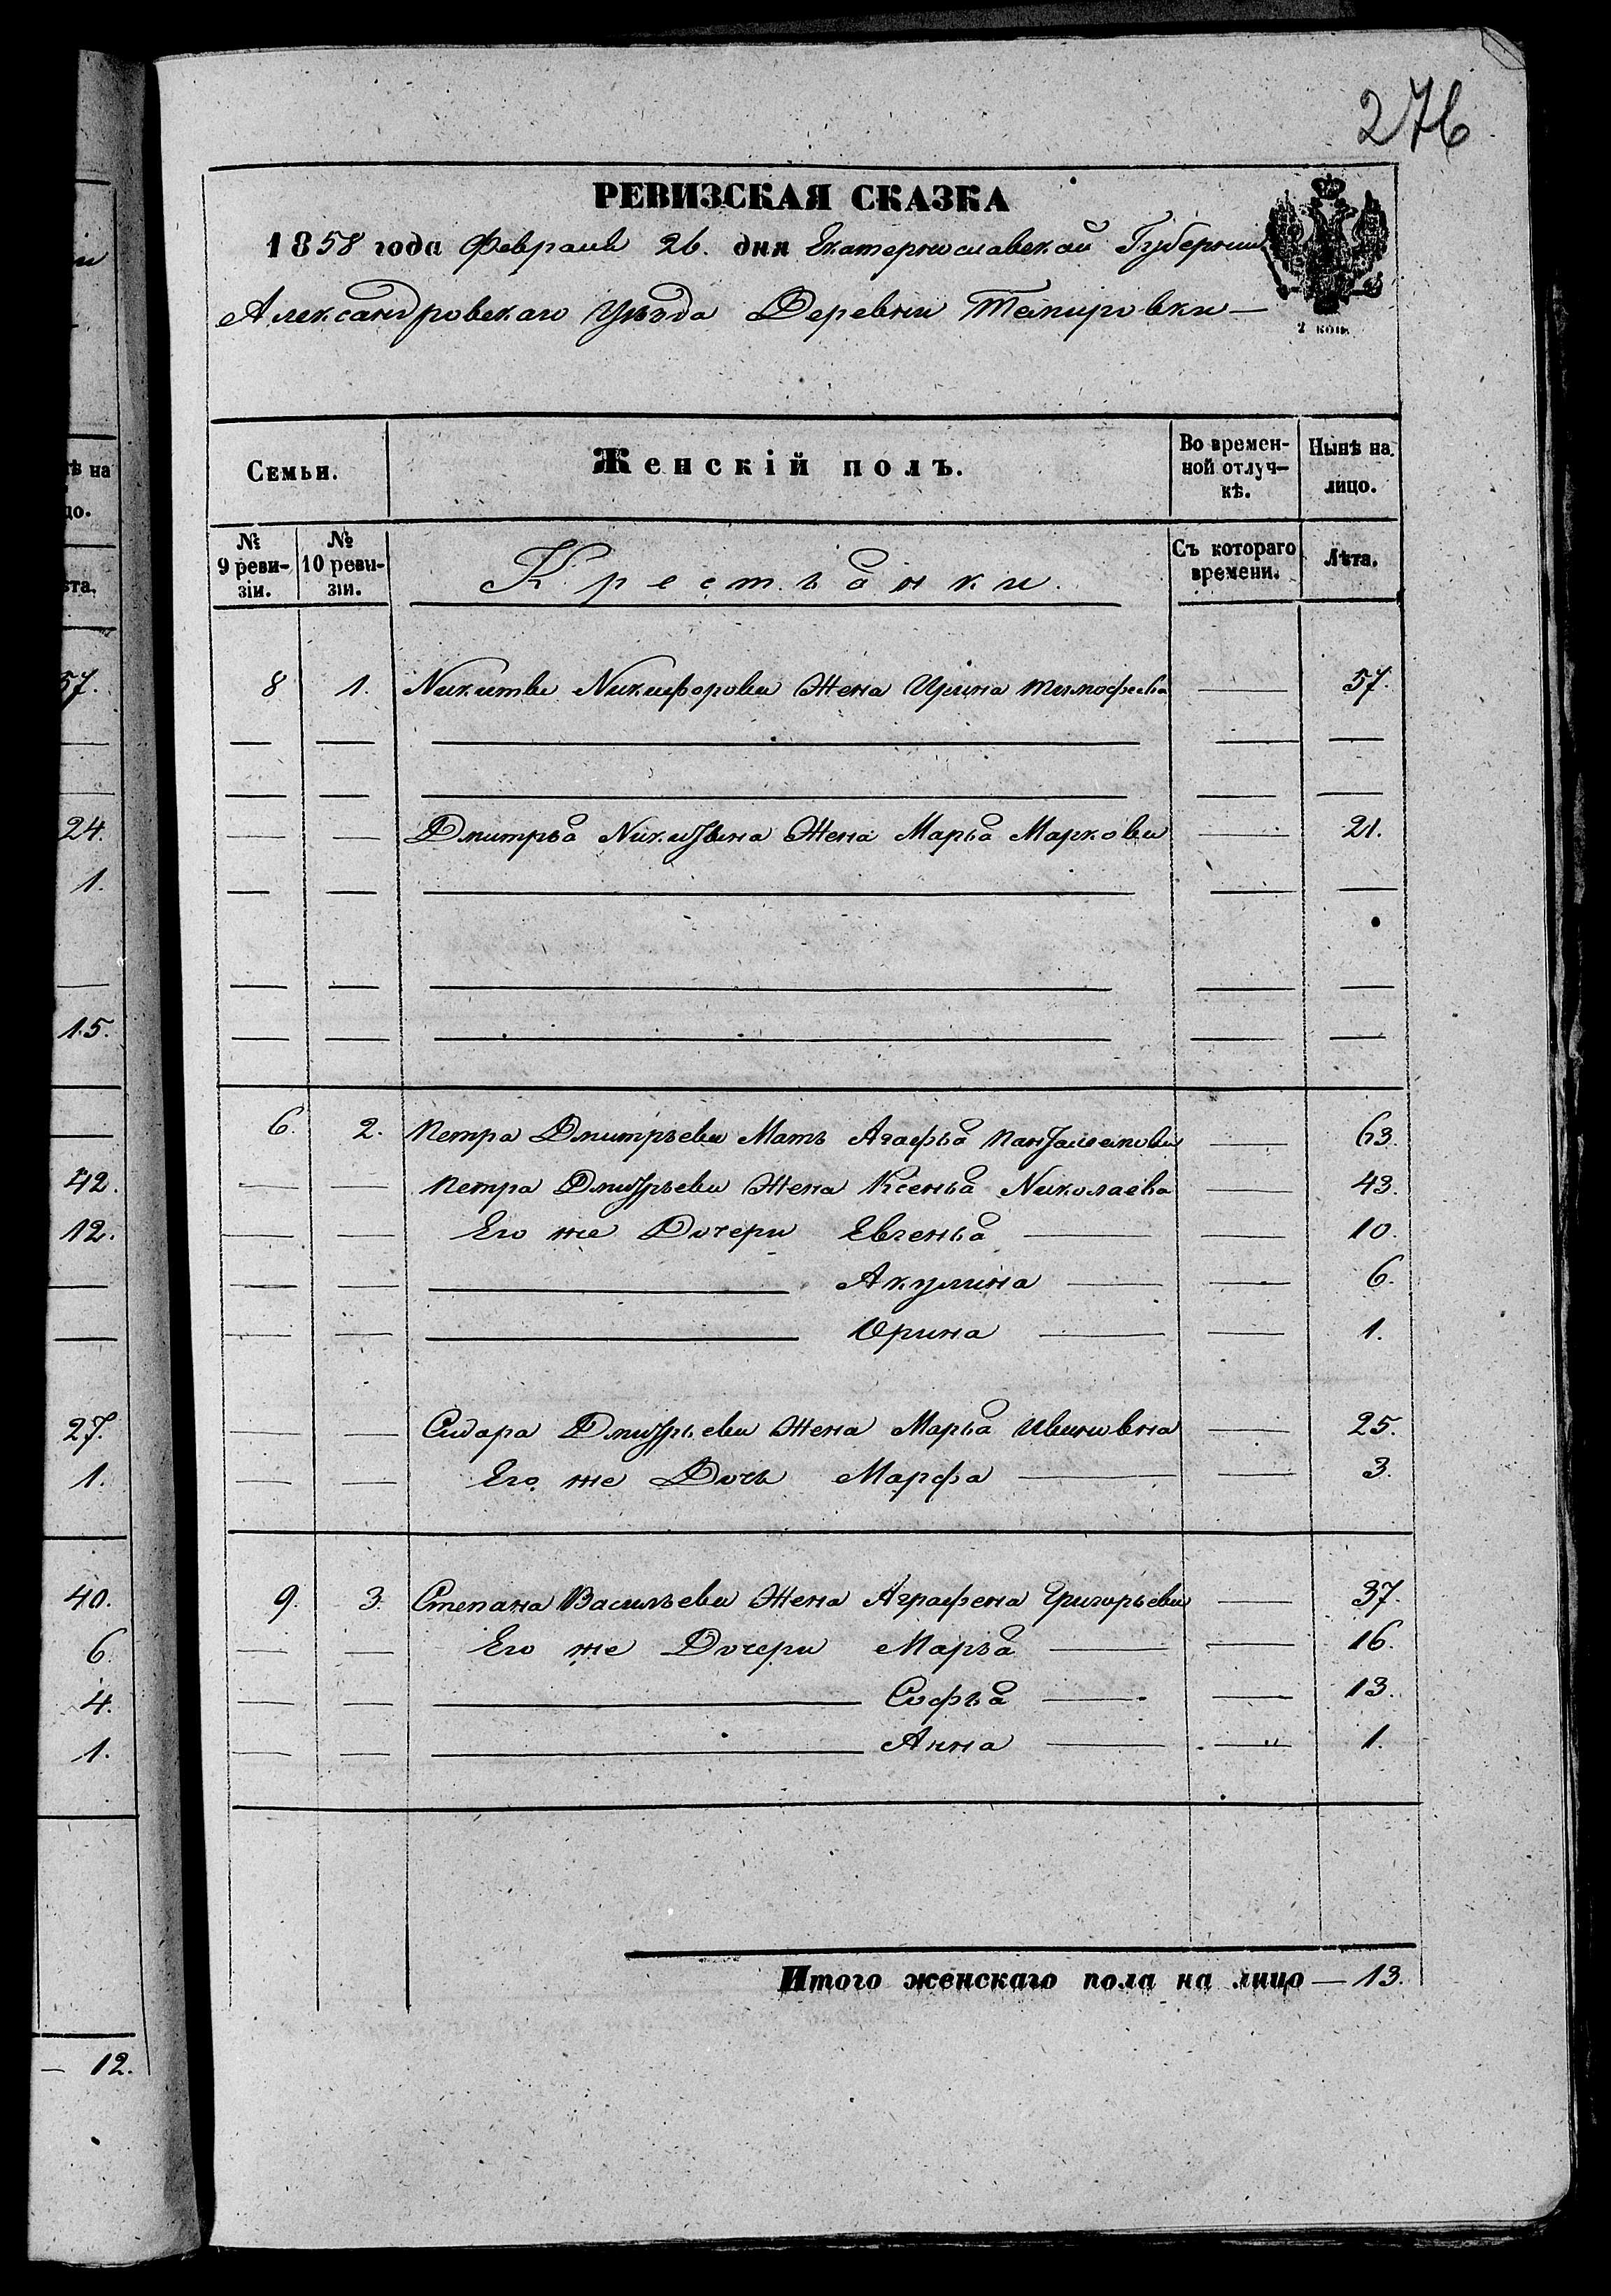 276
РЕВИЗСКАЯ СКАЗКА
1858 года Февраля 26. дня Екатеринославской Губернии
Александровскаго Уѣзда Деревни
2 коп.
Семьи. Женскій полъ. Во времен- Нынѣ на
ной отлуч- лицо.
кѣ.
№ 9 реви- зіи. № 10 реви- зіи. Крестьянки. Съ котораго времени. Лѣта.
8 1. Никиты Никифорова Жена Ирина Тимофеева — 57.
— — Дмитрья Никитина Жена Марья Маркова — 21.
6. 2. Петра Дмитрьева Мать Агафья — 63.
— — Петра Дмитрьева Жена Ксенья Николаева — 43.
— — Его же Дочери Евгенья — — 10.
— — — Акулина — — 6.
— — — Орина — — 1.
— — Сидора Дмитрьева Жена Марья Ивановна — 25.
— — Его же Дочь Марфа — — 3.
9. 3. Степана Васильева Жена Аграфена Григорьева — 37.
— — Его же Дочери Марья — — 16.
— — — Софья — — 13.
— — — Анна — — 1.
Итого женскаго пола на лицо — 13.
ѣ на
цо.
ѣта.
57.
24.
1.
15.
42.
12.
27.
1.
40.
6.
4.
1.
— 12.